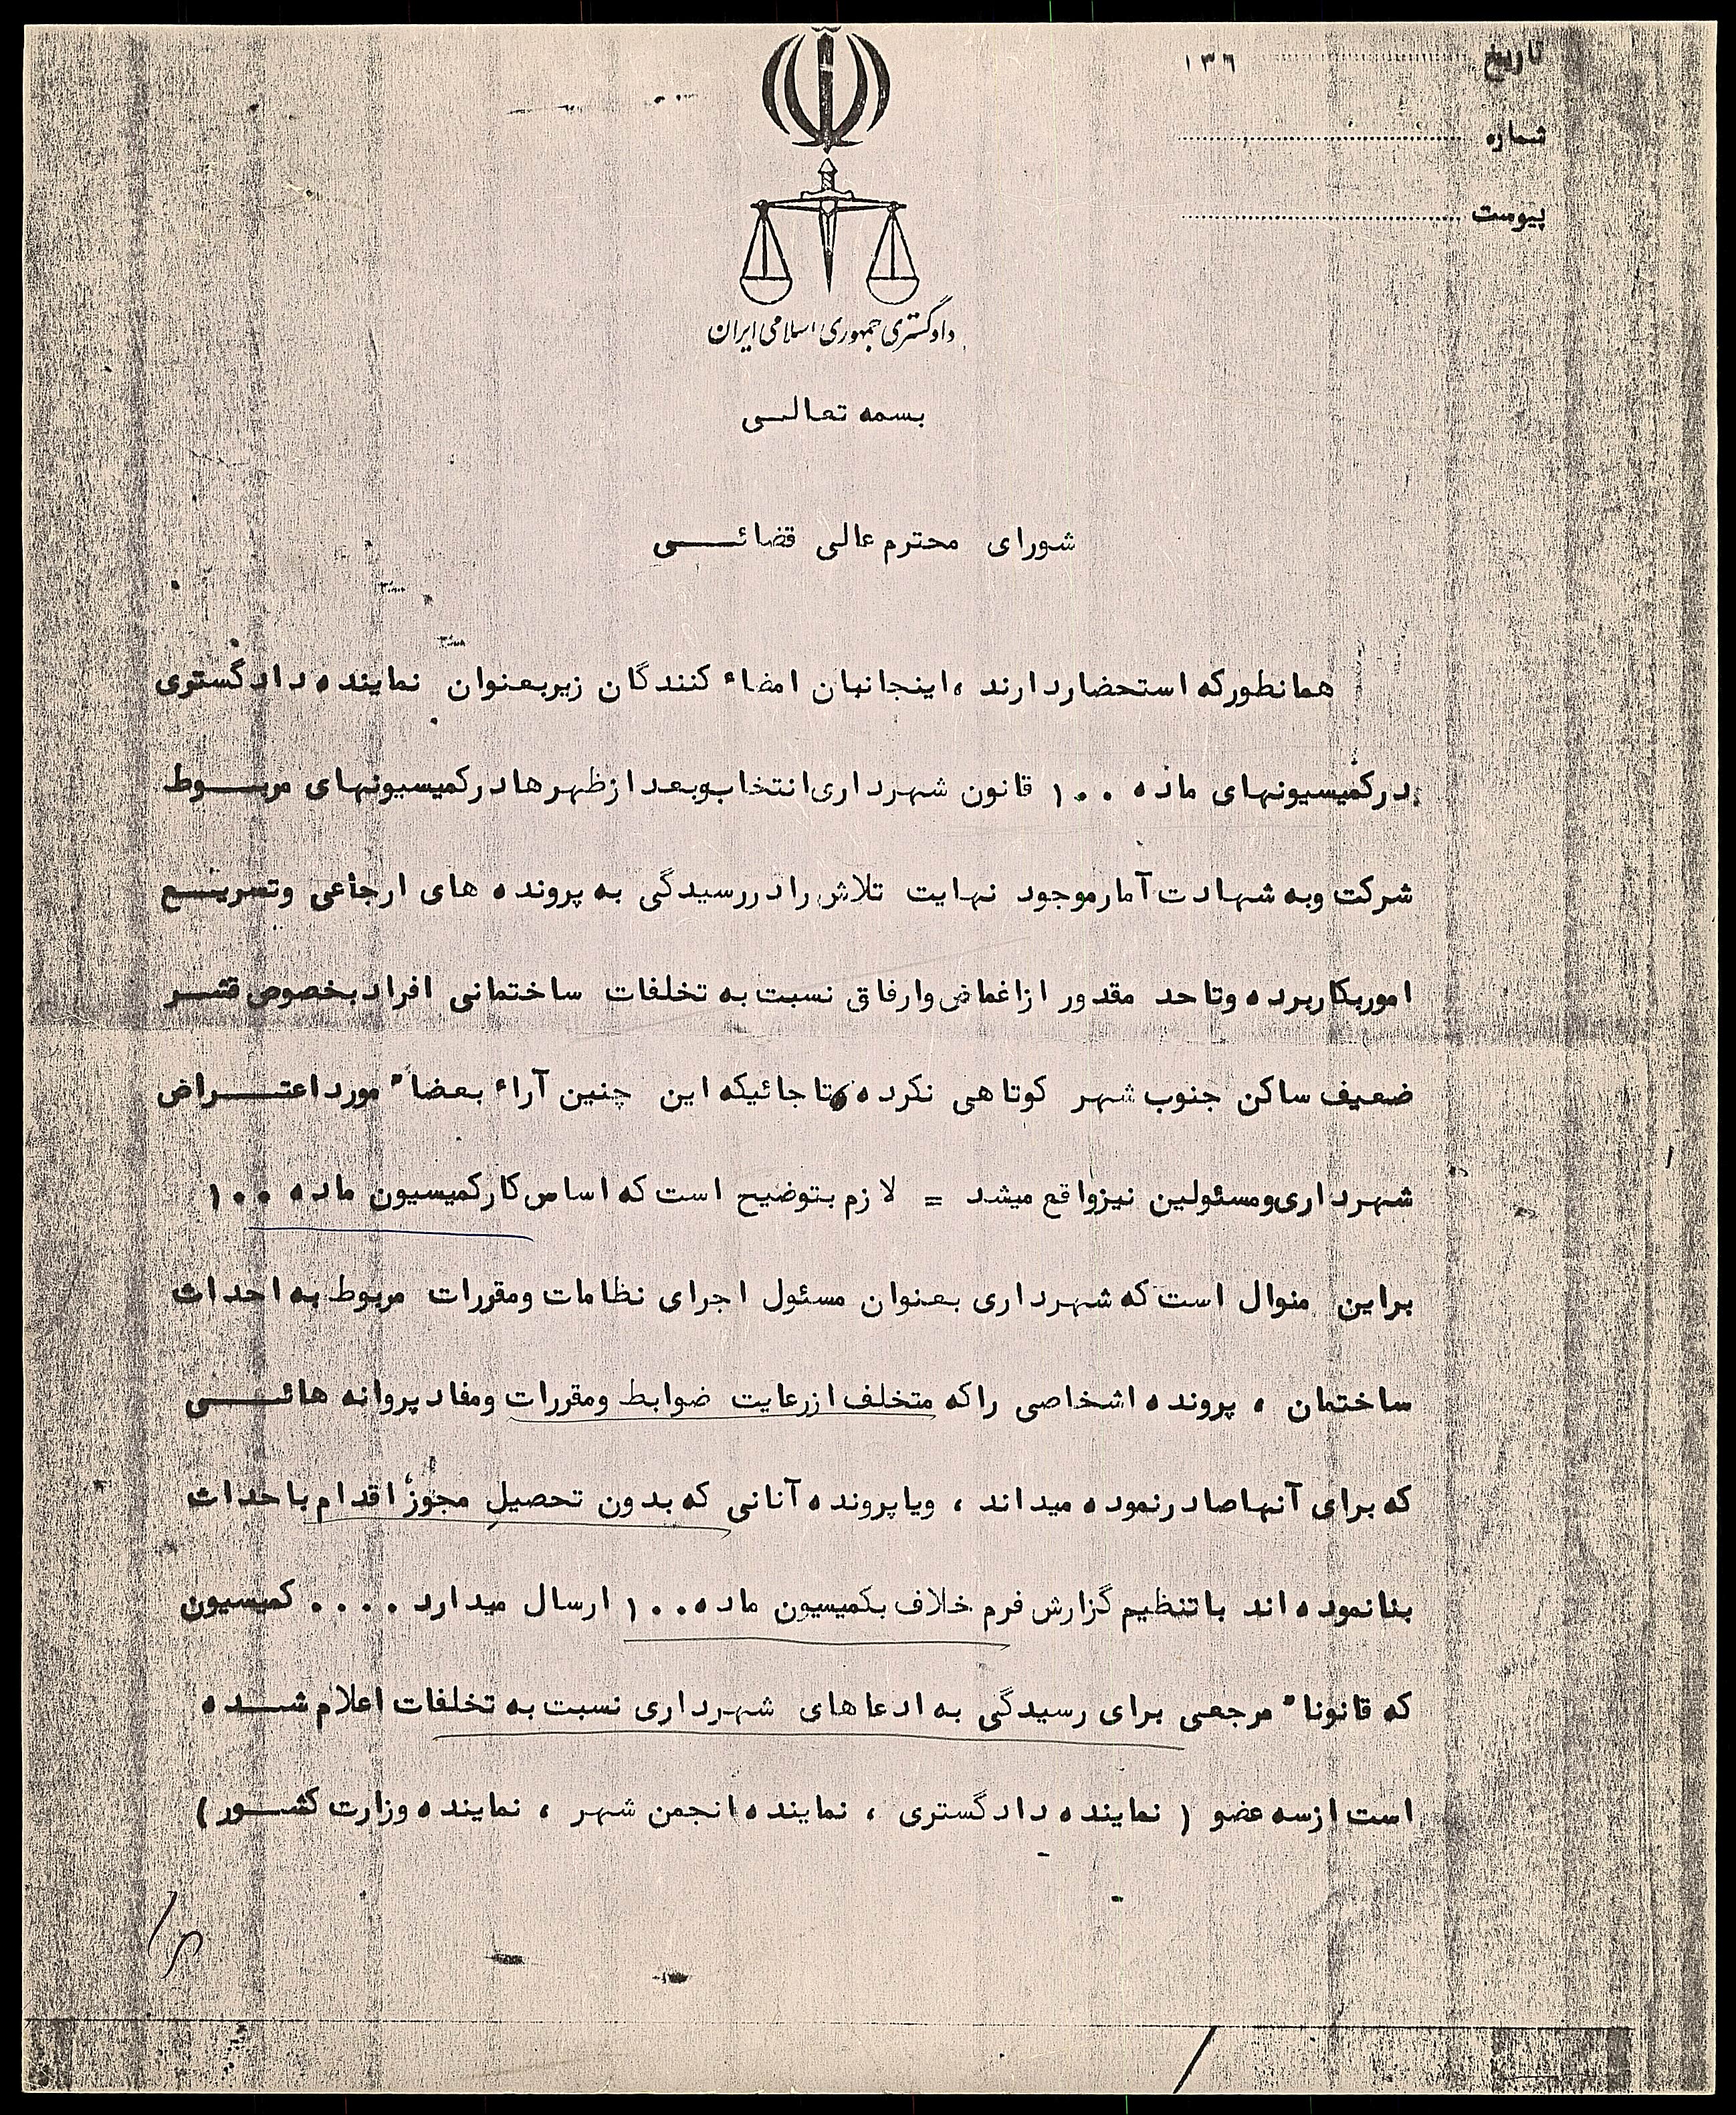 تاریخ ........ ۱۳۶
شماره ........
پیوست ........
دادگستری جمهوری اسلامی ایران
بسمه تعالی
شورای محترم عالی قضائی
همانطورکه استحضاردارند ، اینجانبان امضاء کنندگان زیربعنوان نماینده دادگستری
درکمیسیونهای ماده ۱۰۰ قانون شهرداری انتخاب وبعدازظهرها درکمیسیونهای مربوط
شرکت وبه شهادت آمارموجود نهایت تلاش رادررسیدگی به پرونده های ارجاعی وتسریع
اموربکاربرده وتاحد مقدور ازاغماض وارفاق نسبت به تخلفات ساختمانی افرادبخصوص قشر
ضعیف ساکن جنوب شهر کوتاهی نکرده تاجائیکه این چنین آراء بعضا" مورداعتراض
شهرداری ومسئولین نیزواقع میشد = لازم بتوضیح است که اساس کارکمیسیون ماده ۱۰۰
براین منوال است که شهرداری بعنوان مسئول اجرای نظامات ومقررات مربوط به احداث
ساختمان ، پرونده اشخاصی راکه متخلف ازرعایت ضوابط ومقررات ومفادپروانه هائی
که برای آنهاصادرنموده میداند ، ویاپرونده آنانی که بدون تحصیل مجوز اقدام باحداث
بنانموده اند باتنظیم گزارش فرم خلاف بکمیسیون ماده ۱۰۰ ارسال میدارد .... کمیسیون
که قانونا" مرجعی برای رسیدگی به ادعاهای شهرداری نسبت به تخلفات اعلام شده
است ازسه عضو ( نماینده دادگستری ، نماینده انجمن شهر ، نماینده وزارت کشور )